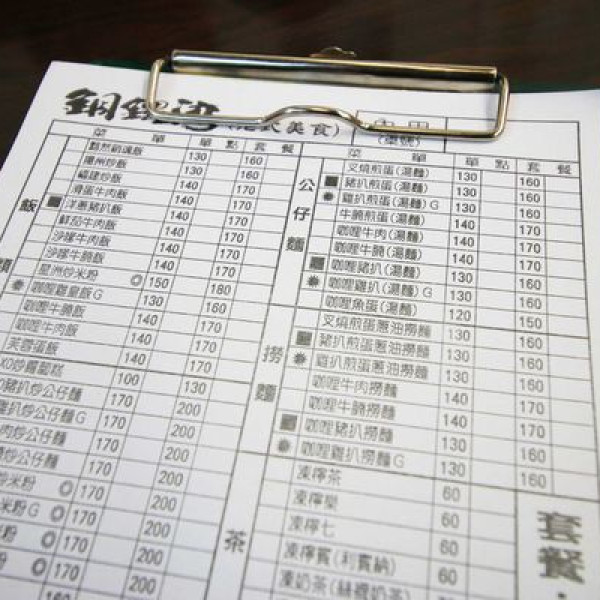 銅鑼灣(港式美食)
菜 單 單 點 套 餐
黯然銷魂飯 130 160
揚州炒飯 130 160
福建炒飯 140 170
滑蛋牛肉飯 140 170
洋蔥豬扒飯 140 170
鮮茄牛肉飯 140 170
沙嗲牛肉飯 140 170
沙嗲牛腩飯 140 170
星洲炒米粉 ◎ 150 180
咖哩雞皇飯G 130 160
咖哩牛腩飯 140 170
咖哩牛肉飯 140 170
芙蓉蛋飯 140 170
XO炒蘿蔔糕 100 130
豬扒炒公仔麵 170 200
雞扒炒公仔麵G 170 200
肉炒公仔麵 170 200
炒公仔麵 170 200
炒米粉 ◎ 170 200
米粉G ◎ 170 200
粉 ◎ 170 200
粉 ◎ 170 200
飯
類
菜 單 單 點 套 餐
公仔麵
叉燒煎蛋(湯麵) 130 160
豬扒煎蛋(湯麵) 130 160
雞扒煎蛋(湯麵)G 130 160
牛腩煎蛋(湯麵) 140 170
咖哩牛肉(湯麵) 140 170
咖哩牛腩(湯麵) 140 170
咖哩豬扒(湯麵) 130 160
咖哩雞扒(湯麵)G 130 160
咖哩魚蛋(湯麵) 120 150
撈麵
叉燒煎蛋蔥油撈麵 130 160
豬扒煎蛋蔥油撈麵 130 160
雞扒煎蛋蔥油撈麵 130 160
咖哩牛肉撈麵 140 170
咖哩牛腩撈麵 140 170
咖哩豬扒撈麵 130 160
咖哩雞扒撈麵G 130 160
茶
凍檸茶 60
凍檸樂 60
凍檸七 60
凍檸賓(利賓納) 60
凍奶茶(絲襪奶茶) 60
套餐